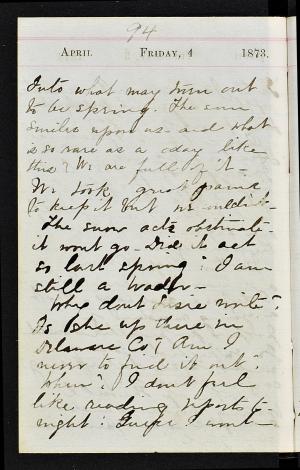 94
April Friday, 4 1873.
Into what may turn out
to be spring. The sun
smiles upon us - and what
is so rare as a day like
this? We are full of it -
We took great pains
to keep it but we couldn't
The snow acts obstinate -
it wont go - Did it act
so last spring? I am
still a wader -
Why dont Susie write?
Is she up there in
Delaware Co? Am I
never to find it out?
When? I dont feel
like reading reports to-
night. Guess I wont -